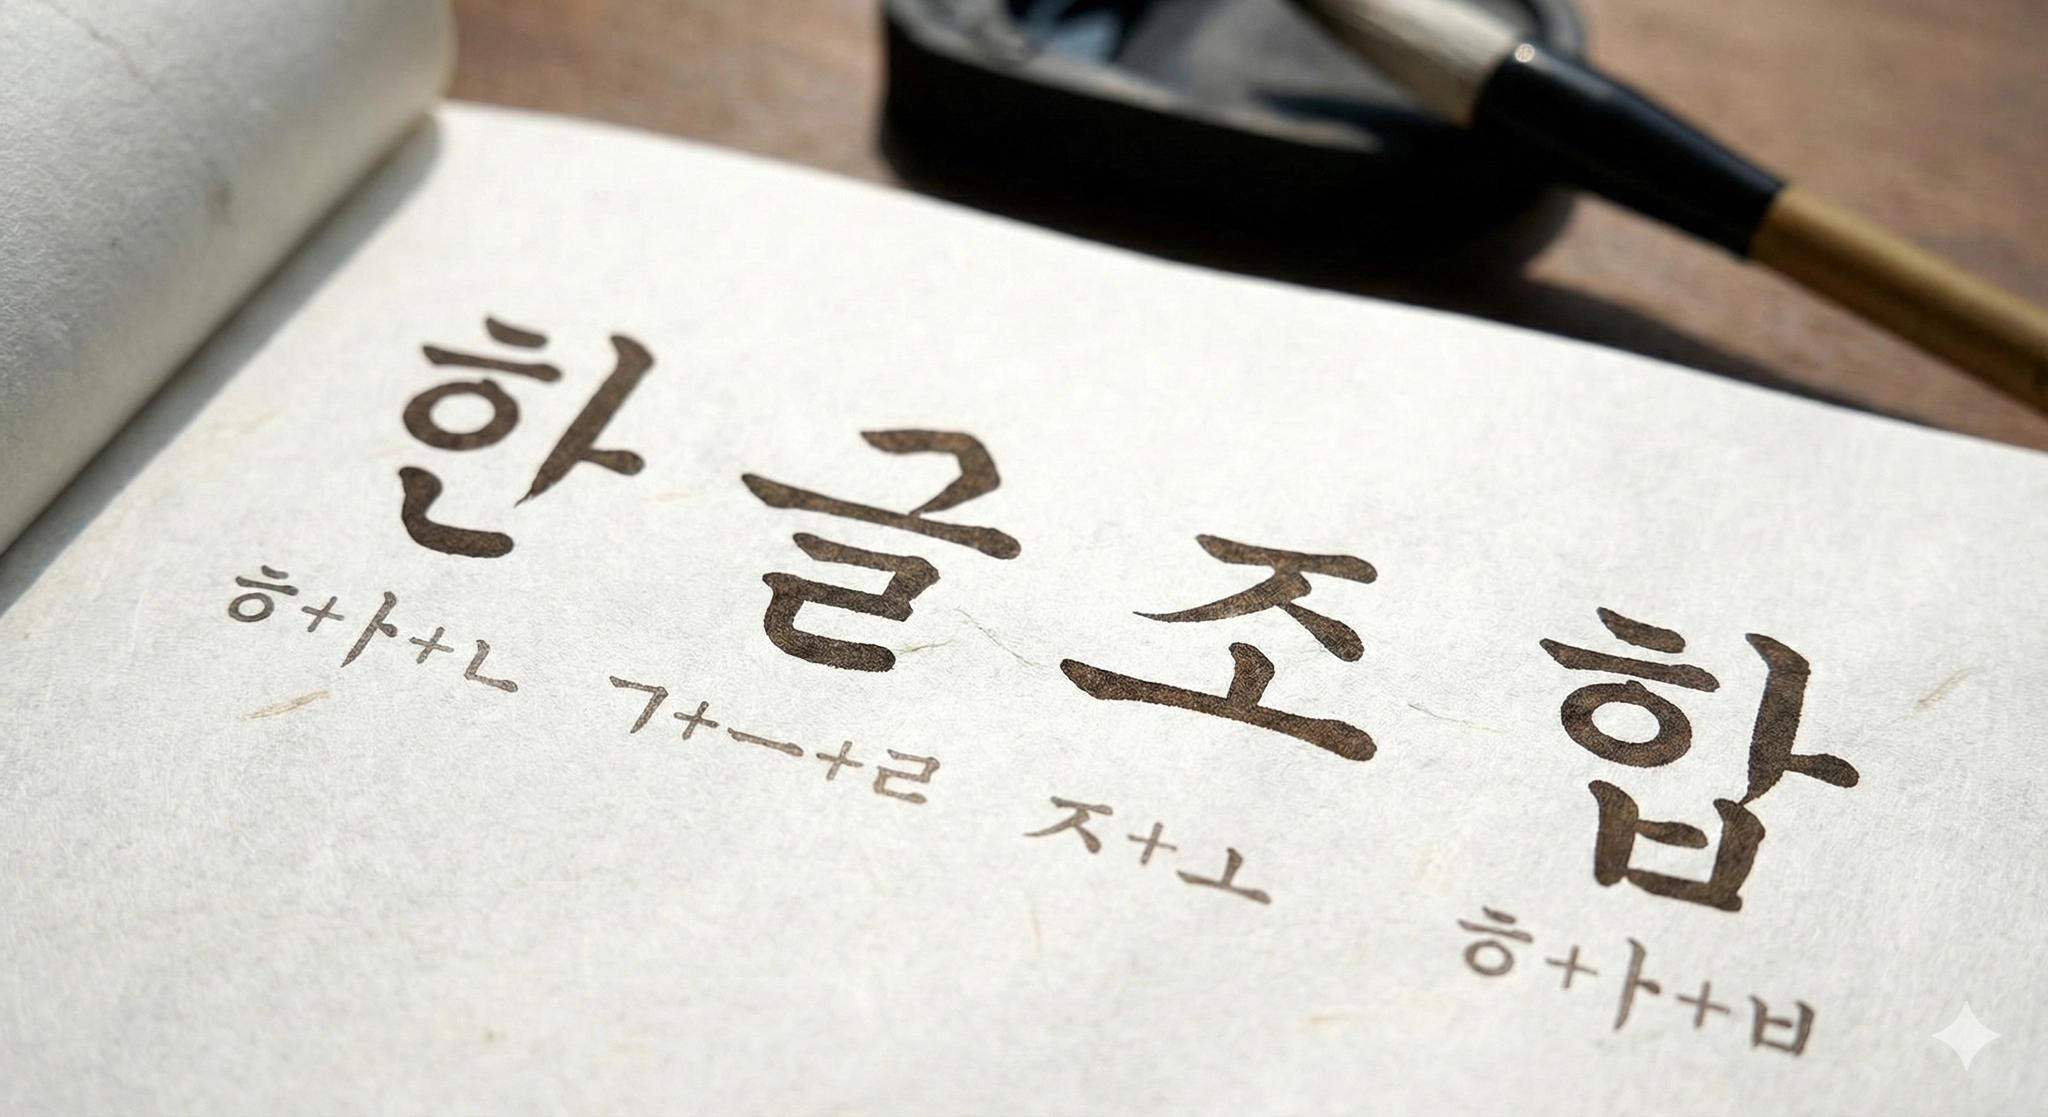 한글조합
ㅎ+ㅏ+ㄴ ㄱ+ㅡ+ㄹ ㅈ+ㅗ ㅎ+ㅏ+ㅂ